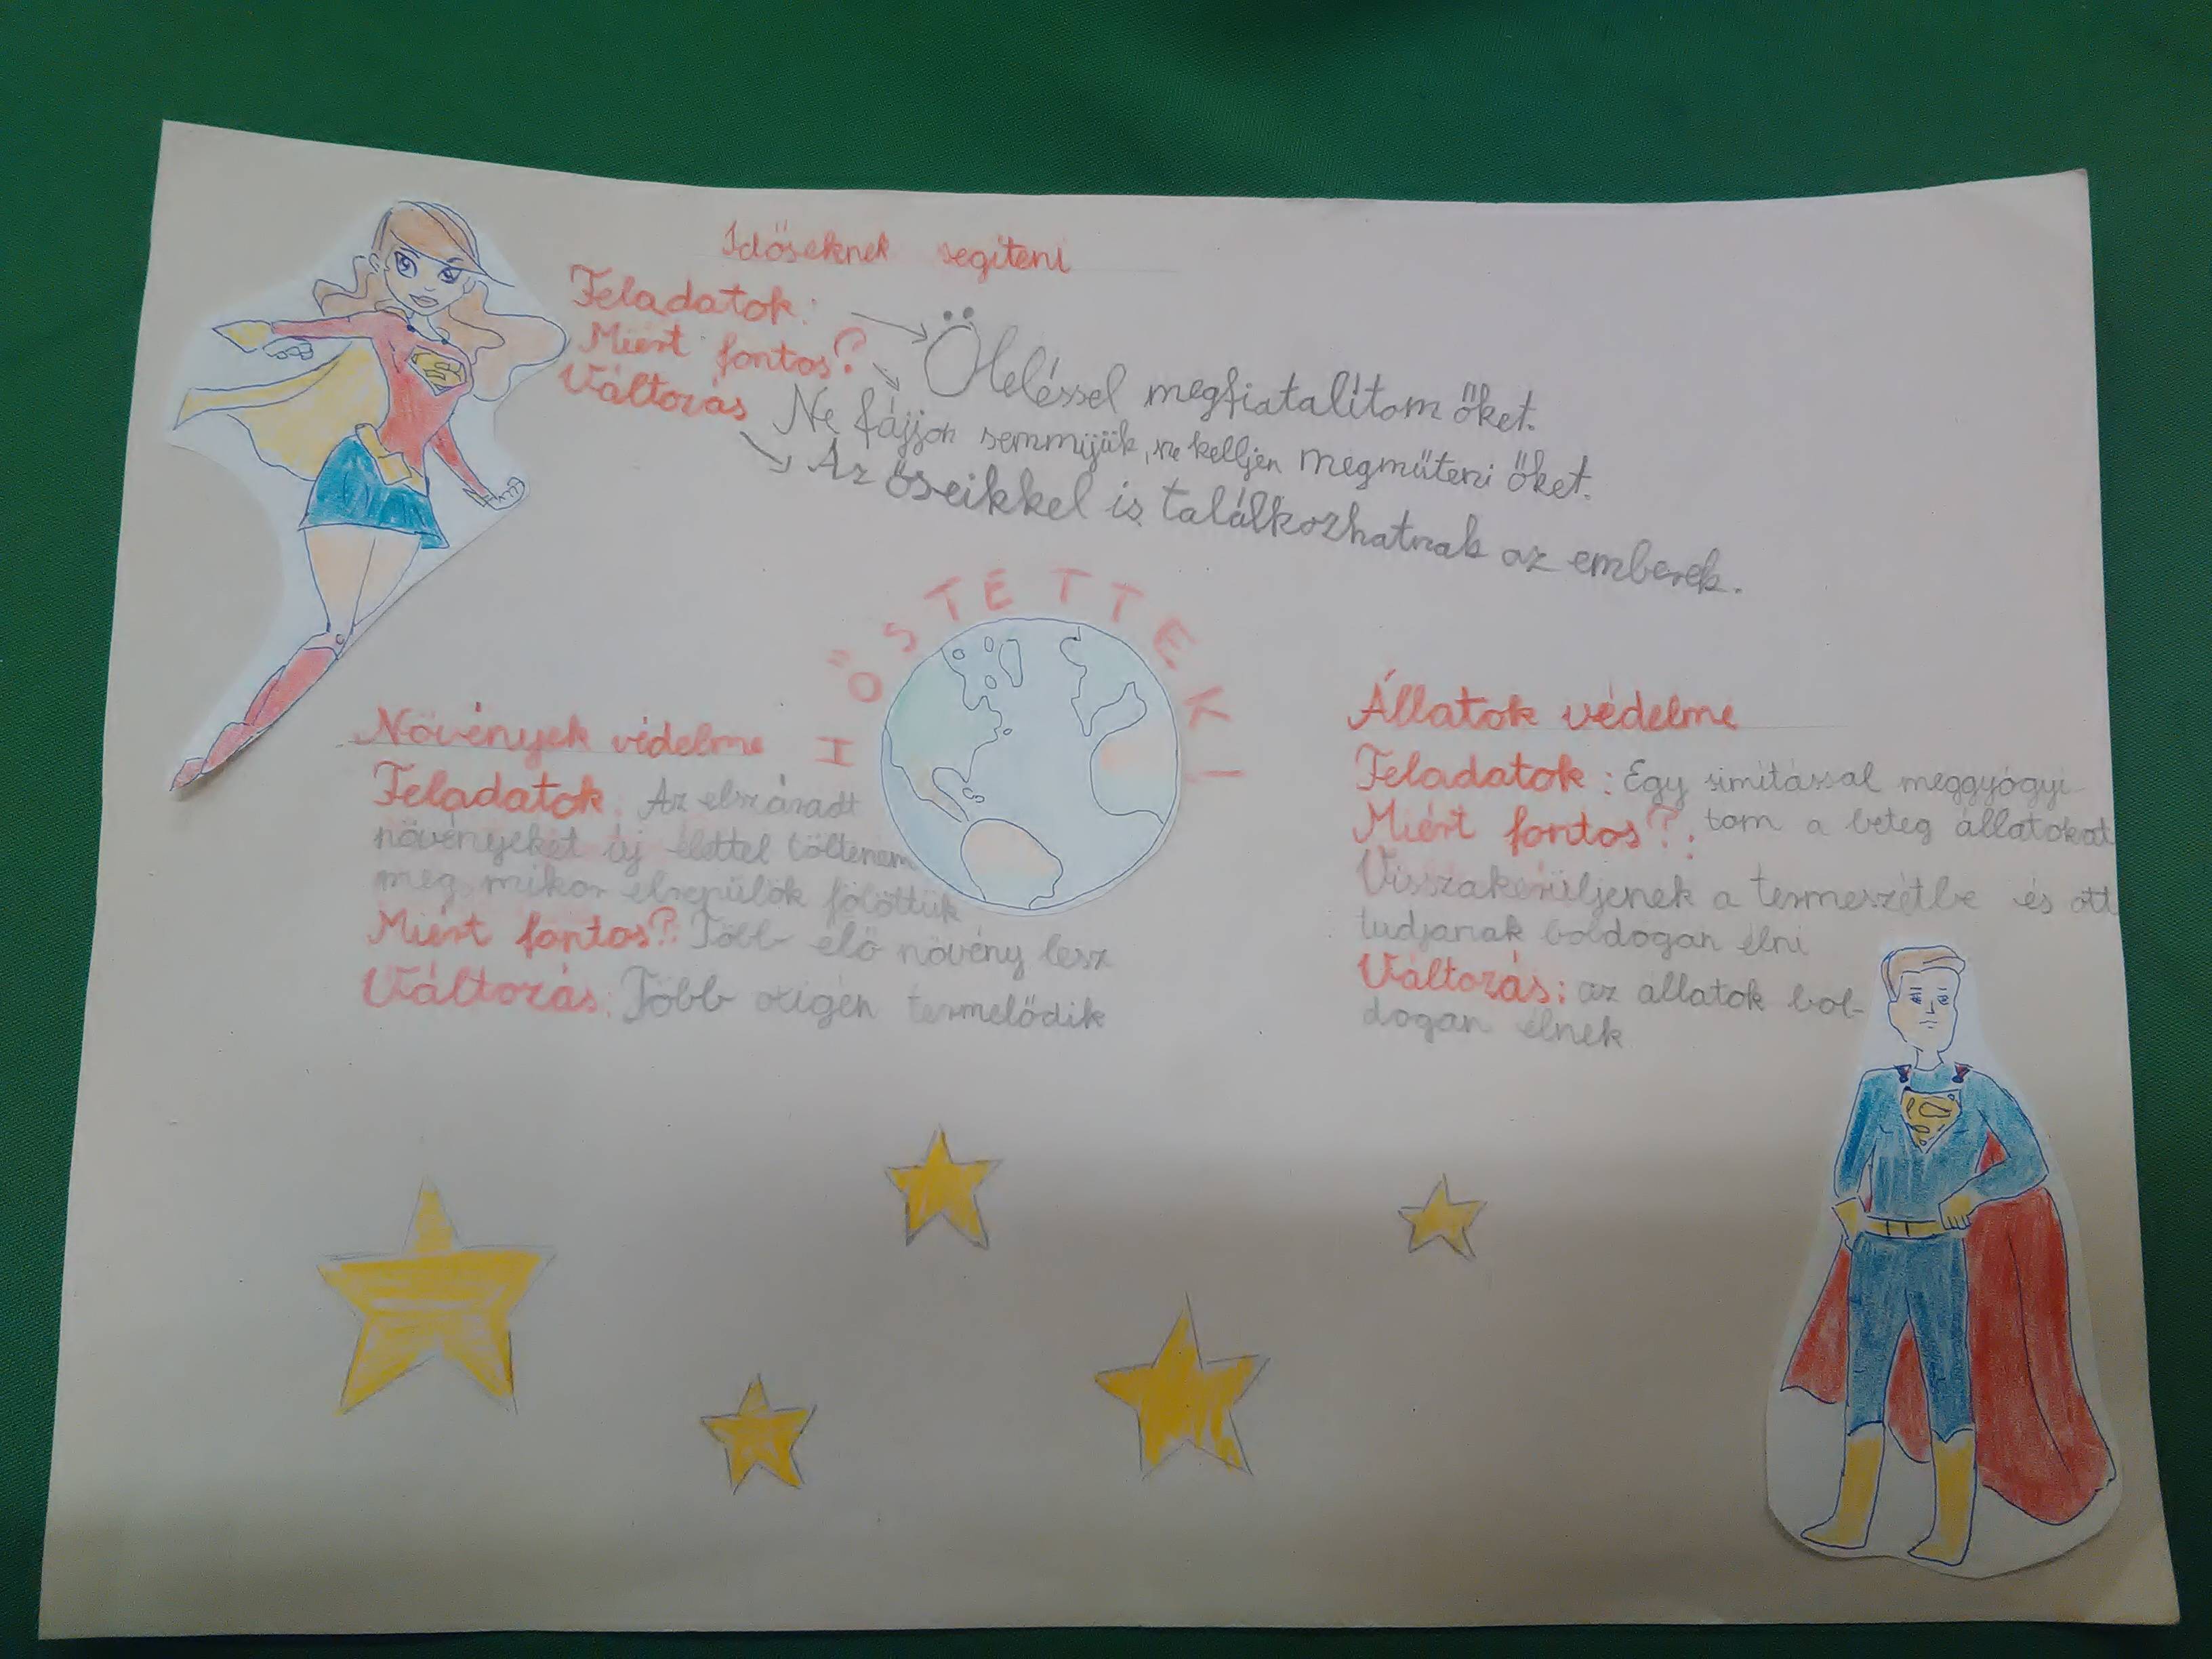 Időseknek segíteni
Feladatok:
Miért fontos?
Változás
Öleléssel megfiatalítom őket.
Ne fájjon semmijük, ne kelljen megműteni őket.
Az őseikkel is találkozhatnak az emberek.
HŐSTETTEK!
Növények védelme
Feladatok: Az elszáradt
növényeket új élettel töltenem
meg, mikor elrepülök fölöttük
Miért fontos?: Több élő növény lesz
Változás: Több oxigén termelődik
Állatok védelme
Feladatok: Egy simítással meggyógyí-
Miért fontos?: tom a beteg állatokat
Visszakerüljenek a természetbe és ott
tudjanak boldogan élni
Változás: az állatok bol-
dogan élnek